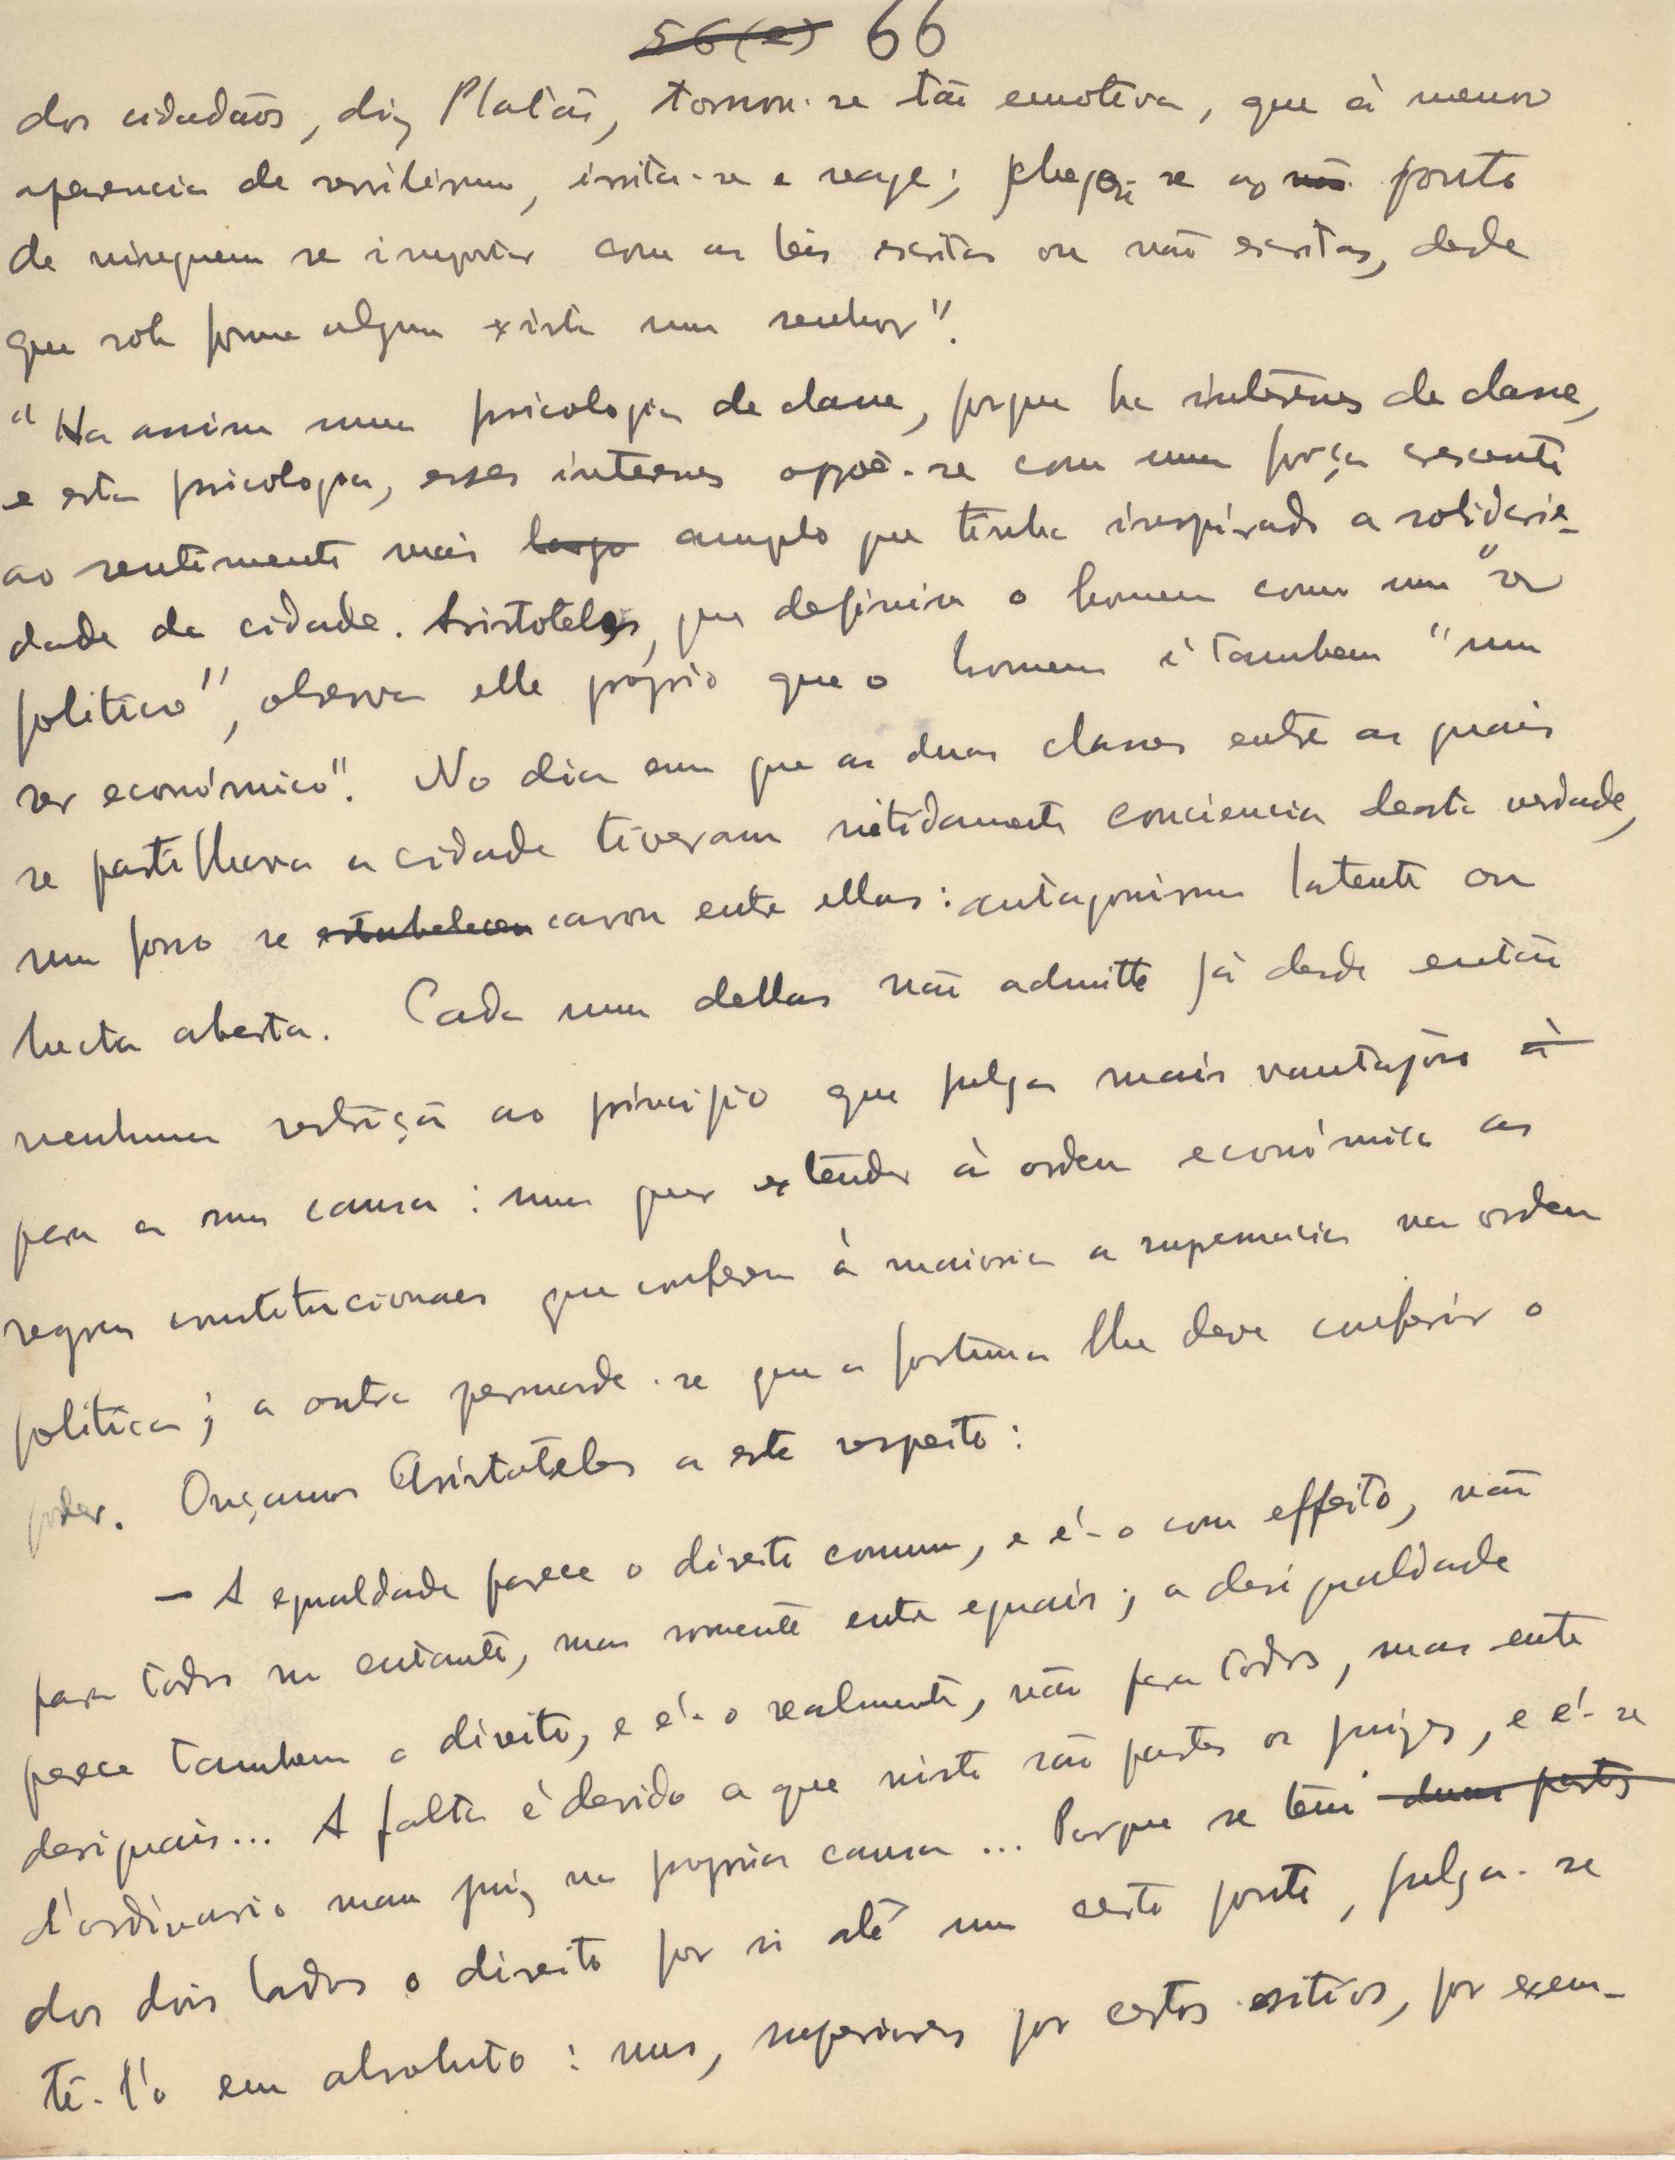 56(e) 66
dos cidadãos, diz Platão, tornou-se tão emotiva, que à menor
aparencia de servilismo, irrita-se e reage; chega-se ao não ponto
de ninguem se importar com as leis escritas ou não escritas, desde
que sob forma alguma exista um senhor".
"Ha assim uma psicologia de classe, porque ha interêsses de classe,
e esta psicologia, esses interesses oppoē-se com uma força crescente
ao sentimento mais largo amplo que tinha inspirado a solidarie-
dade da cidade. Aristoteles, que definira o homem como um "ser
politico", observa elle próprio que o homem é tambem "um
ser económico". No dia em que as duas classes entre as quais
se partilhava a cidade tiveram nitidamente conciencia desta verdade,
um fosso se estabeleceu cavou entre ellas: antagonismo latente ou
lucta aberta. Cada uma dellas não admitte já desde então
nenhuma restrição ao principio que julga mais vantajoso à
para a sua causa: uma quer extender à ordem económica as
regras constitucionaes que conferem à maioria a supremacia na ordem
politica; a outra persuade-se que a fortuna lhe deve conferir o
poder. Ouçamos Aristoteles a este respeito:
— A egualdade parece o direito comum, e é-o com effeito, não
para todos no entanto, mas somente entre eguais; a desigualdade
parece tambem o direito, e é-o realmente, não para todos, mas entre
desiguais... A falta é devida a que nisto são partes os juizes, e é-se
d'ordinario mau juiz na propria causa... Porque se tem duas partes
dos dois lados o direito por si até um certo ponto, julga-se
tê-l'o em absoluto: uns, superiores por certos critérios, por exem-